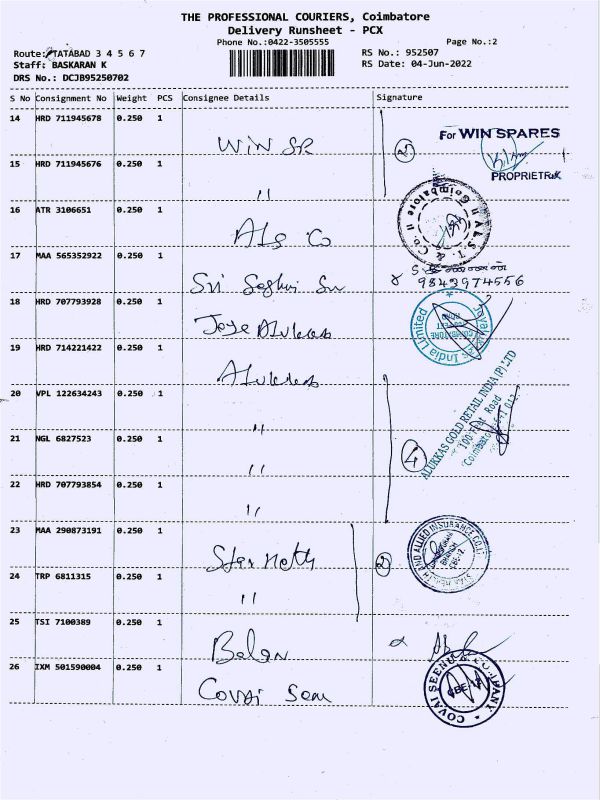 THE PROFESSIONAL COURIERS, Coimbatore
Delivery Runsheet - PCX
Phone No.:0422-3505555
Page No.:2
Route: TATABAD 3 4 5 6 7
RS No.: 952507
Staff: BASKARAN K
RS Date: 04-Jun-2022
DRS No.: DCJB95250702
S No Consignment No Weight PCS Consignee Details Signature
14 HRD 711945678 0.250 1
WIN SP
2
For WIN SPARES
PROPRIETOR
15 HRD 711945676 0.250 1
"
16 ATR 3106651 0.250 1
ALS Co
A.L.S.T. & Co. Coimbatore
17 MAA 565352922 0.250 1
Sri
9843974556
18 HRD 707793928 0.250 1
Joye Alukkas
India Limited
19 HRD 714221422 0.250 1
Alukkas
20 VPL 122634243 0.250 1
"
4
ALUKKAS GOLD RETAIL INDIA (P) LTD
100 Feet Road
Coimbatore-641 012
21 NGL 6827523 0.250 1
"
22 HRD 707793854 0.250 1
"
23 MAA 290873191 0.250 1
Star Helth
2
STAR HEALTH AND ALLIED INSURANCE CO.LT
BRANCH
CBE-12
24 TRP 6811315 0.250 1
"
25 TSI 7100389 0.250 1
Balan
26 IXM 501590004 0.250 1
Covai Seenu
COVAI SEENU & COMPANY
CBE-12